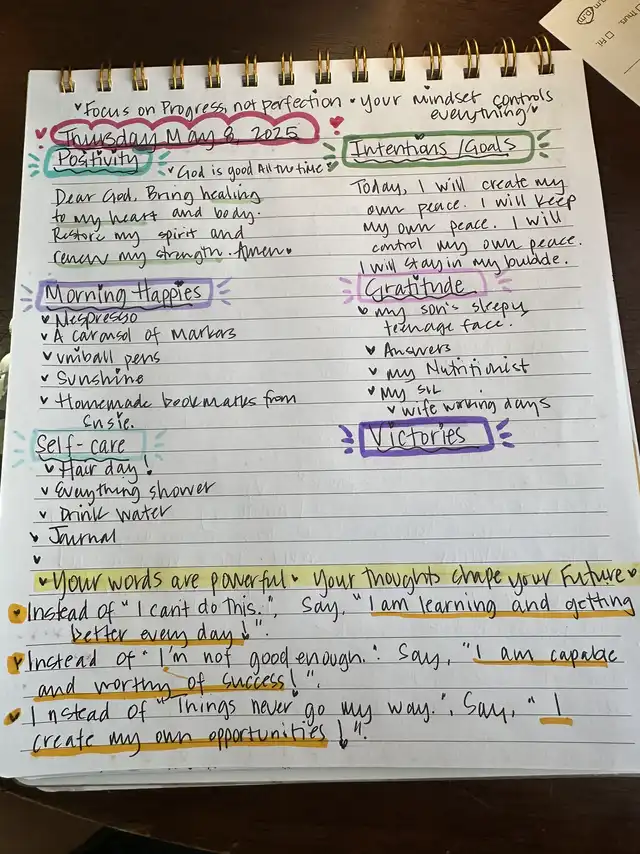 Focus on Progress, not perfection • Your mindset controls
everything
Thursday May 8, 2025
Positivity
God is good All the time
Dear God, Bring healing
to my heart and body.
Restore my spirit and
renew my strength. Amen.
Intentions/Goals
Today, I will create my
own peace. I will keep
my own peace. I will
control my own peace.
I will stay in my bubble.
Morning Happies
Nespresso
A carousol of markers
uniball pens
Sunshine
Homemade bookmarks from
Susie.
Gratitude
my son's sleepy
teenage face.
Answers
my Nutritionist
my SIL
wife working days
Self-care
Hair day!
Everything shower
Drink water
Journal
Victories
Your words are powerful • Your thoughts shape your Future
Instead of "I can't do this.", Say, "I am learning and getting
better every day!".
Instead of "I'm not good enough.". Say, "I am capable
and worthy of success!".
Instead of "Things never go my way.", Say, "I
create my own opportunities!".
Thurs.
Fri.